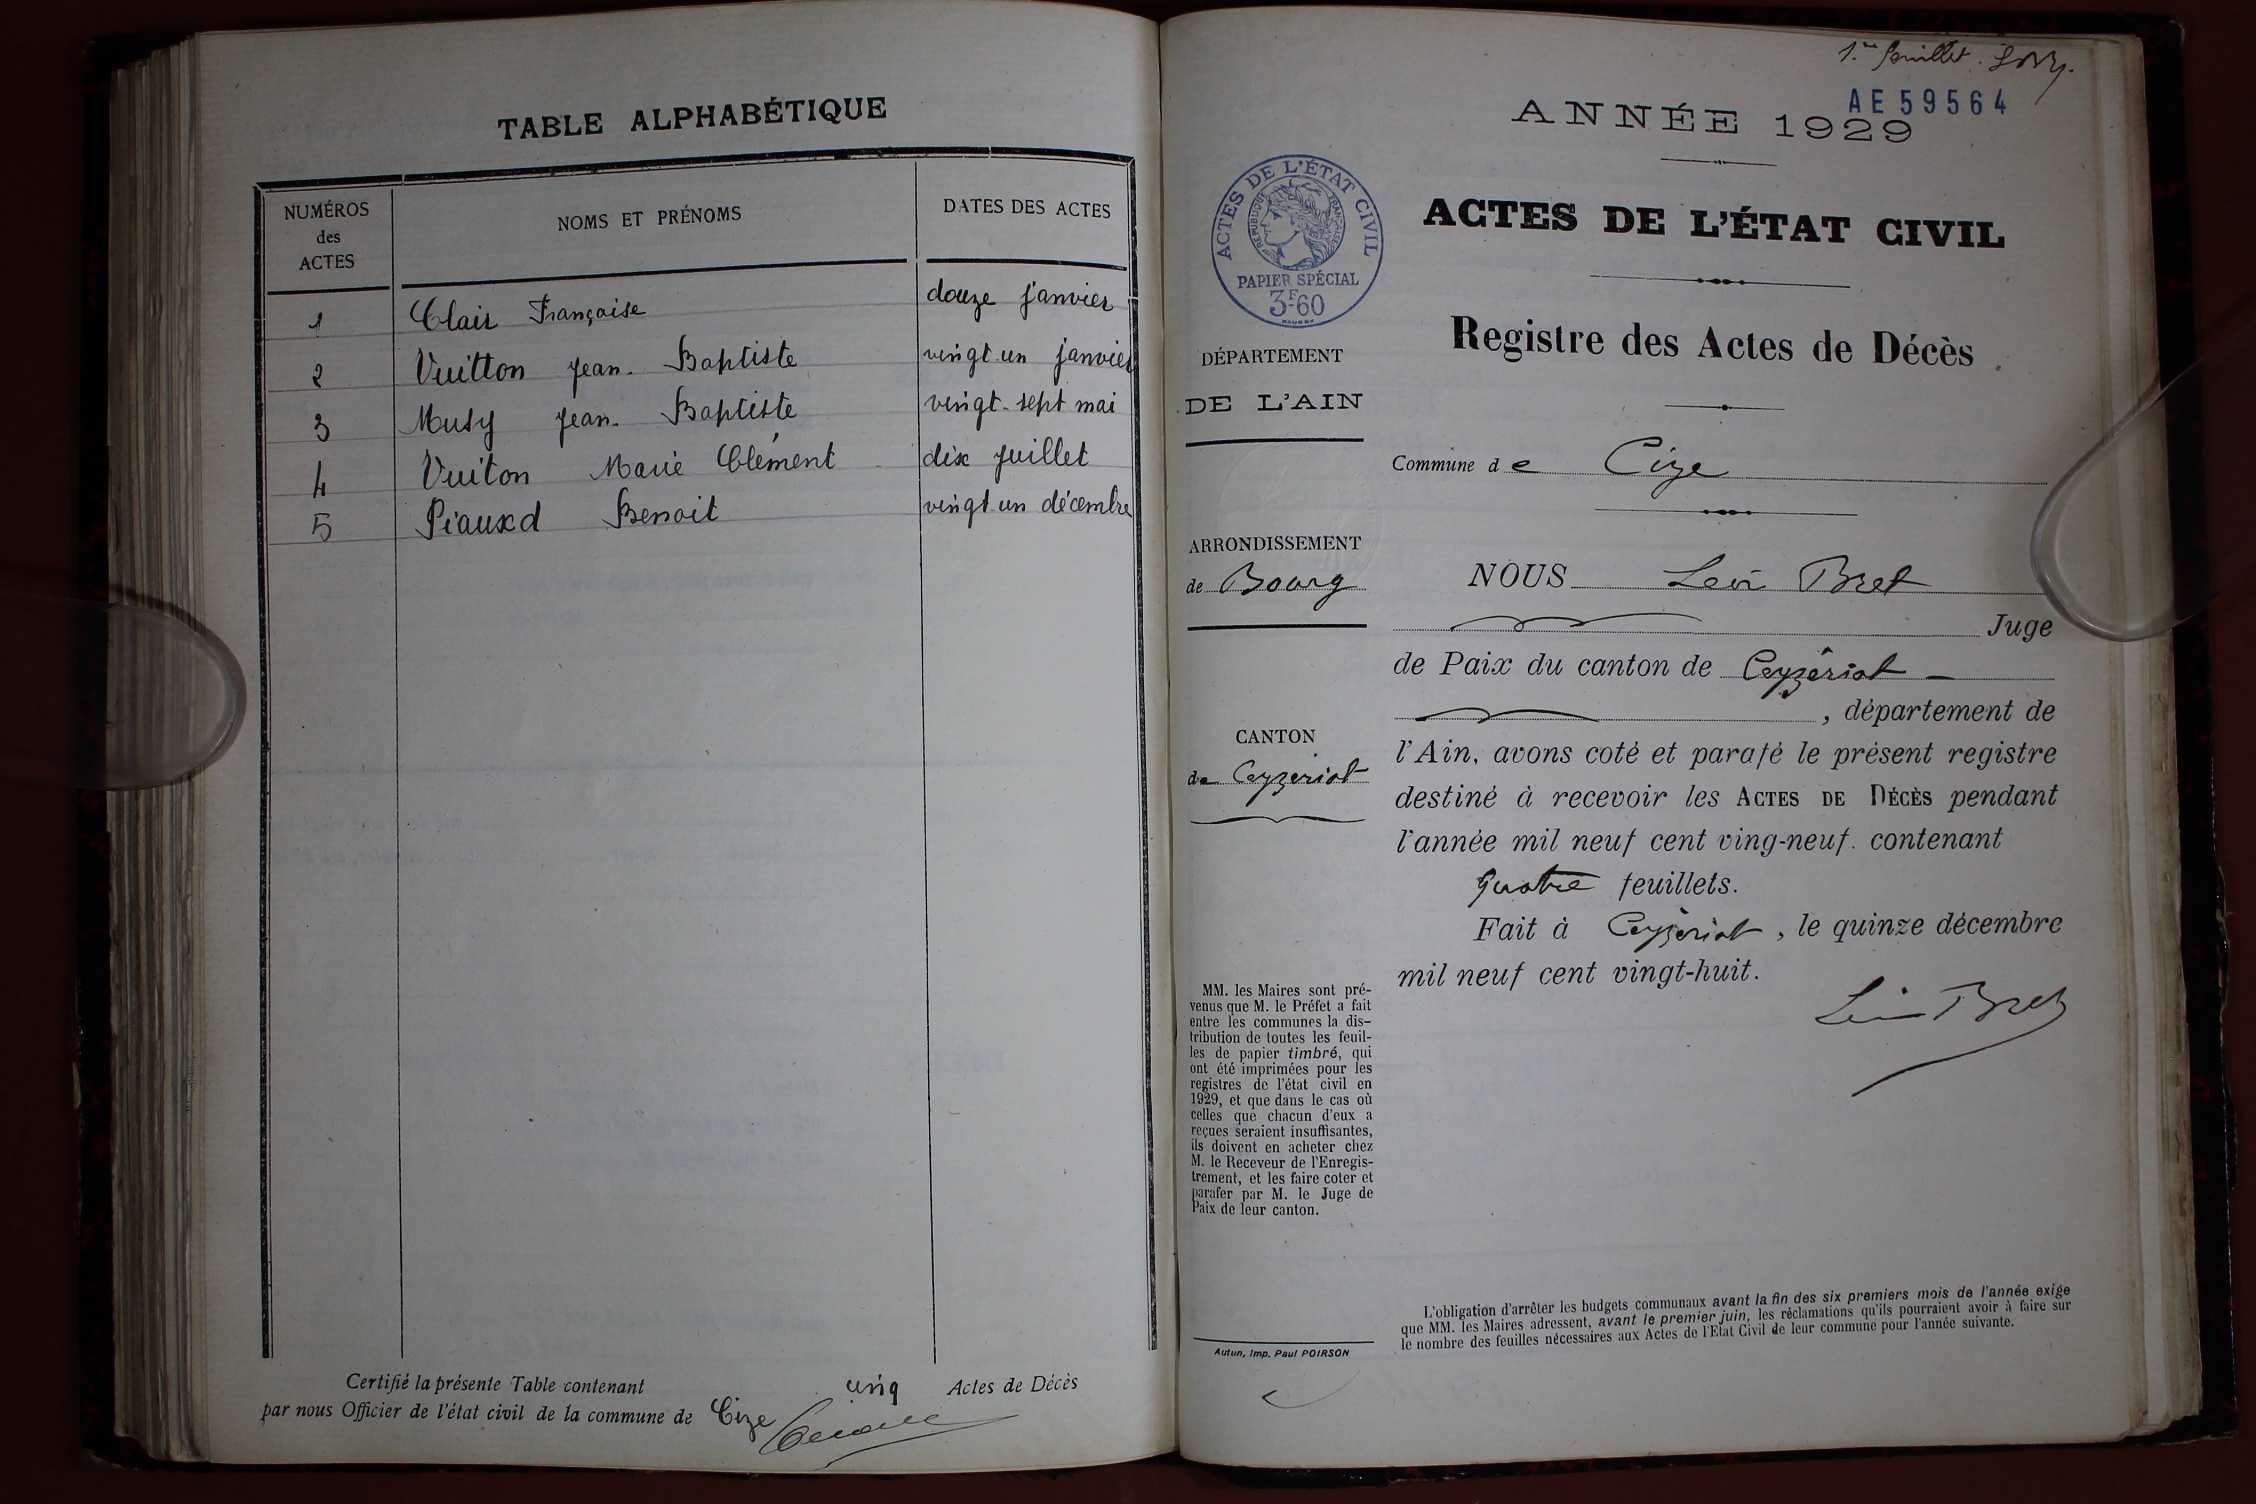 TABLE ALPHABÉTIQUE
NUMÉROS
des
ACTES
NOMS ET PRÉNOMS
DATES DES ACTES
1 Clair Françoise douze janvier
2 Vuitton Jean-Baptiste vingt-un janvier
3 Musy Jean-Baptiste vingt-sept mai
4 Vuiton Marie Clément dix juillet
5 Benoit vingt-un décembre
Certifié la présente Table contenant cinq Actes de Décès
par nous Officier de l'état civil de la commune de Cize
1er feuillet.
AE 59564
ANNÉE 1929
ACTES DE L'ÉTAT CIVIL
RÉPUBLIQUE FRANÇAISE
PAPIER SPÉCIAL
3F60
ACTES DE L'ÉTAT CIVIL
Registre des Actes de Décès
DÉPARTEMENT
DE L'AIN
Commune de Cize
ARRONDISSEMENT
de Bourg
NOUS Léon Bret
Juge
de Paix du canton de Ceyzériat
, département de
CANTON
de Ceyzeriat
l'Ain, avons coté et parafé le présent registre
destiné à recevoir les ACTES DE DÉCÈS pendant
l'année mil neuf cent ving-neuf. contenant
quatre feuillets.
Fait à Ceyzériat, le quinze décembre
mil neuf cent vingt-huit.
Léon Bret
MM. les Maires sont pré-
venus que M. le Préfet a fait
entre les communes la dis-
tribution de toutes les feuil-
les de papier timbré, qui
ont été imprimées pour les
registres de l'état civil en
1929, et que dans le cas où
celles que chacun d'eux a
reçues seraient insuffisantes,
ils doivent en acheter chez
M. le Receveur de l'Enregis-
trement, et les faire coter et
parafer par M. le Juge de
Paix de leur canton.
Autun, Imp. Paul POIRSON
L'obligation d'arrêter les budgets communaux avant la fin des six premiers mois de l'année exige
que MM. les Maires adressent, avant le premier juin, les réclamations qu'ils pourraient avoir à faire sur
le nombre des feuilles nécessaires aux Actes de l'Etat Civil de leur commune pour l'année suivante.